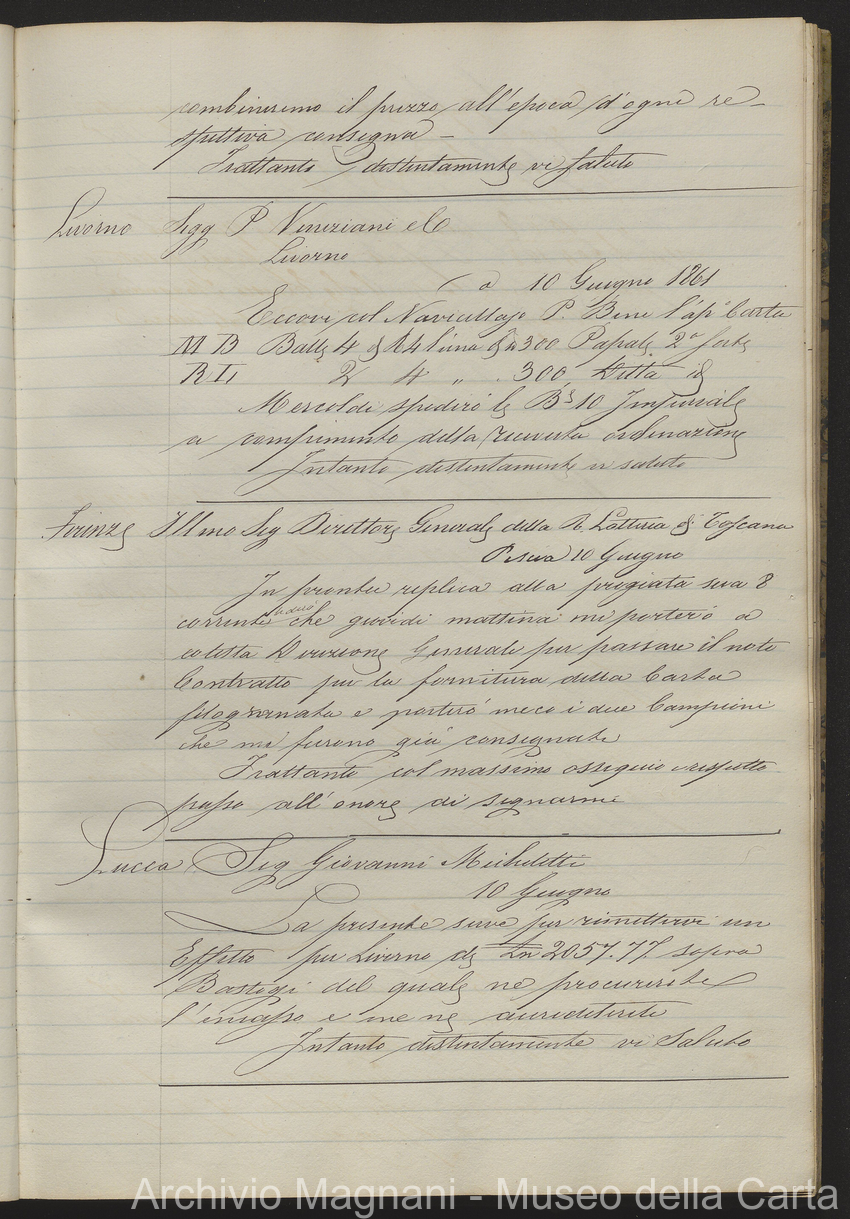 combineremo il prezzo all'epoca d'ogni re-
spettiva consegna -
Trattanto distintamente vi saluto
Livorno Sigg P Veneziani e C
Livorno
a 10 Giugno 1861
Eccovi col Navicellajo P. Bene Carta
M B Balle 4 300 Papale 2a forte
R L 2 4 " 300 Detta id
Mercoldi spedirò le Bs 10 Imperiale
a compimento della ricevuta ordinazione
Intanto distintamente vi saluto
Firenze Illmo Sig Direttore Generale della R. Lotteria di Toscana
Pescia 10 Giugno
In pronta replica alla pregiata sua 8
corrente che giovedi mattina mi porterò a
cotesta Direzione Generale per passare il noto
Contratto per la fornitura della Carta
filogranata e porterò meco i due Campioni
che mi furono già consegnati
Trattanto col massimo ossequio e rispetto
passo all'onore di segnarmi
Lucca Sig Giovanni Micheletti
10 Giugno
La presente serve per rimettervi un
Effetto per Livorno di Ln 2057.77 sopra
Bastogi del quale ne procurerete
l'incasso e me ne accrediterete
Intanto distintamente vi saluto
Archivio Magnani - Museo della Carta